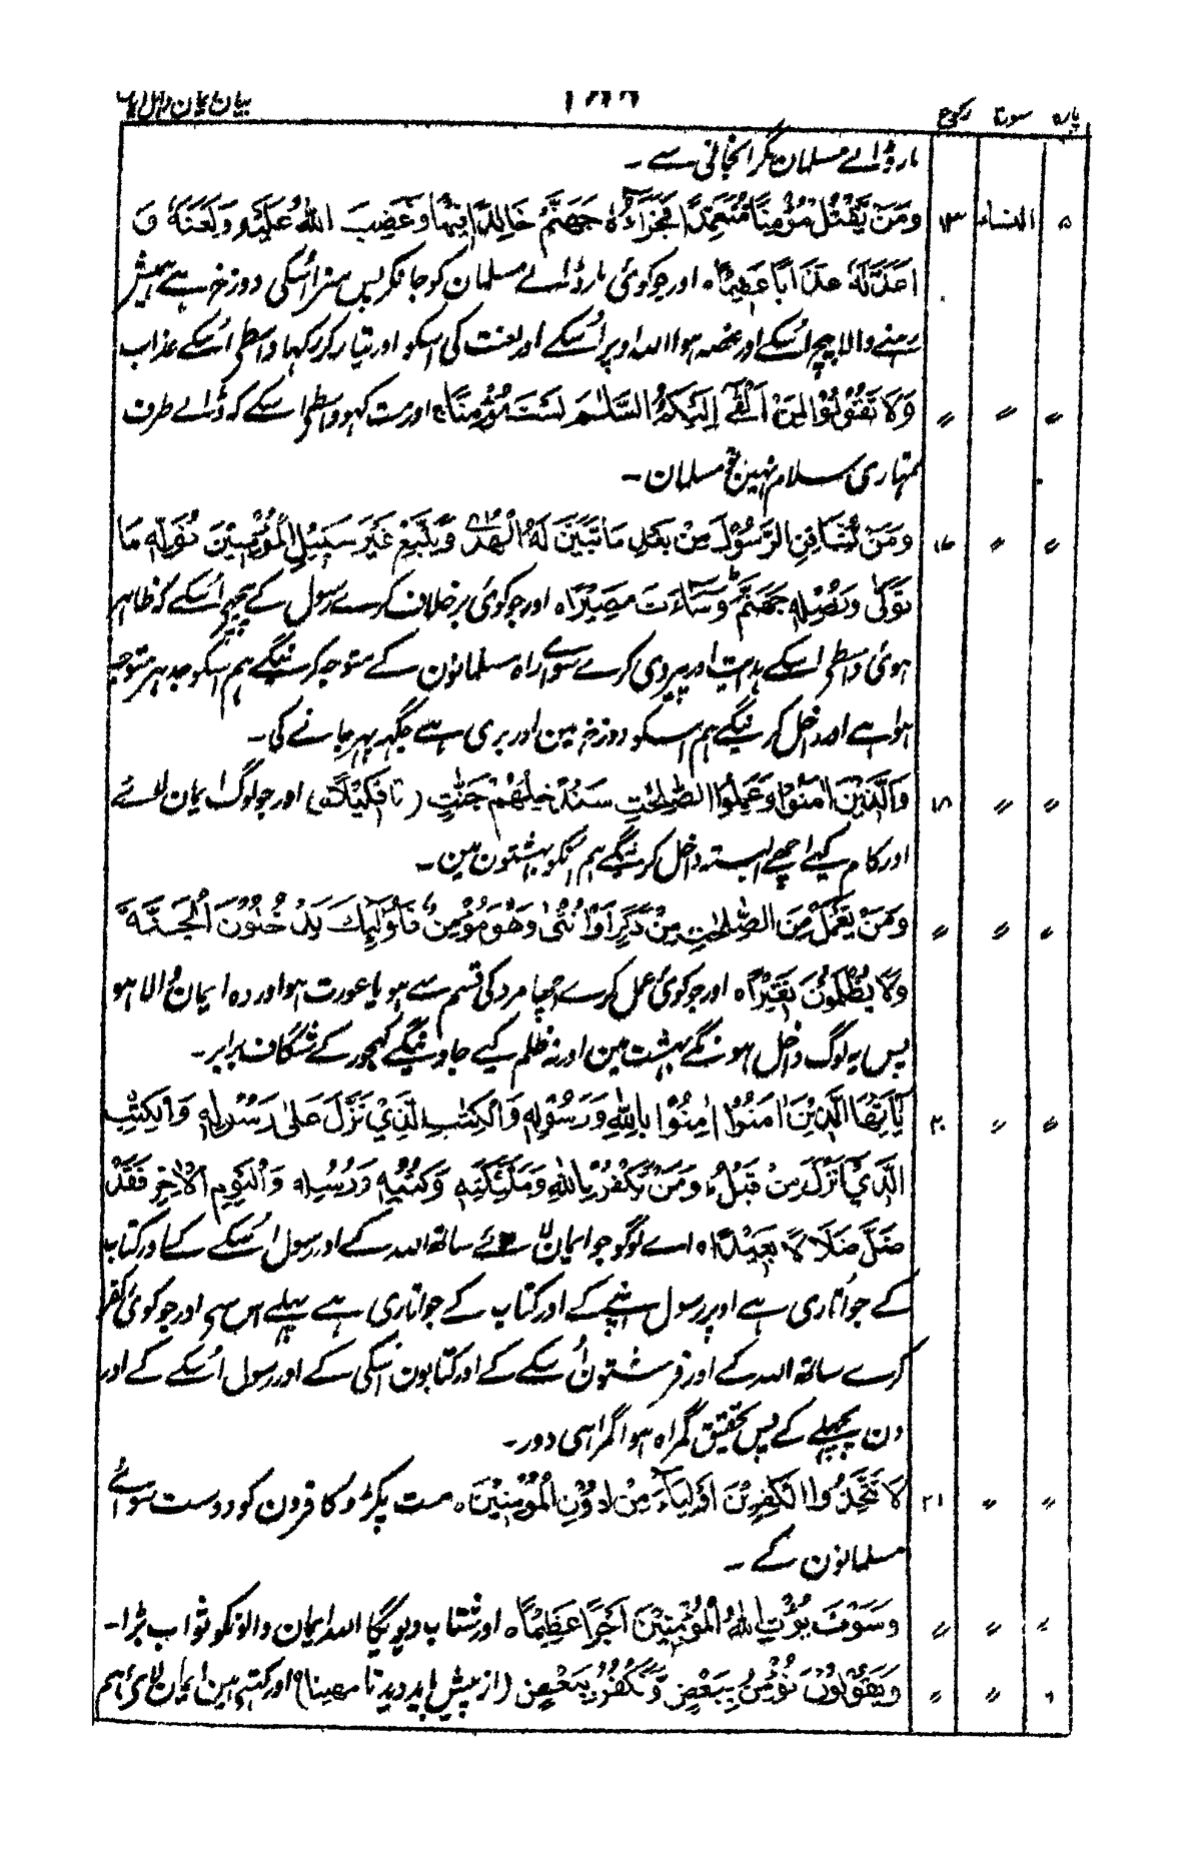 بیان ایمان واہل ایمان
پارہ سورۃ رکوع
مارڈالے مسلمان مگر انجانی سے ۔
۵ النساء ۱۳ وَمَنْ يَّقْتُلْ مُؤْمِنًا مُّتَعَمِّدًا فَجَزَآؤُهٗ جَهَنَّمُ خَالِدًا فِيْهَا وَغَضِبَ اللّٰهُ عَلَيْهِ وَلَعَنَهٗ وَ
اَعَدَّ لَهٗ عَذَابًا عَظِيْمًا ہ اور جو کوئی مارڈالے مسلمان کو جانکر پس سزا اُسکی دوزخ ہے ہمیش
رہنے والا بیچ اُسکے اور غصہ ہوا اللہ اوپر اُسکے اور لعنت کی اسکو اور تیار کر رکہا واسطے اُسکے عذاب
〃 〃 〃 وَلَا تَقُوْلُوْا لِمَنْ اَلْقٰٓى اِلَيْكُمُ السَّلٰمَ لَسْتَ مُؤْمِنًا ج اور مت کہو واسطے اسکے کہ ڈالے طرف
تمہاری سلام نہین تو مسلمان ۔
〃 〃 ۱۷ وَمَنْ يُّشَاقِقِ الرَّسُوْلَ مِنْ بَعْدِ مَا تَبَيَّنَ لَهُ الْهُدٰى وَيَتَّبِعْ غَيْرَ سَبِيْلِ الْمُؤْمِنِيْنَ نُوَلِّهٖ مَا
تَوَلّٰى وَنُصْلِهٖ جَهَنَّمَ ط وَسَآءَتْ مَصِيْرًا ہ اور جو کوئی برخلاف کرے رسول کے پیچھے اُسکے کہ ظاہر
ہوئی واسطے اسکے ہدایت اور پیروی کرے سوائے راہ مسلمانون کے متوجہ کرینگے ہم اسکو جدہر متوجہ
ہوا ہے اور داخل کرینگے ہم اسکو دوزخ مین اور بری ہے جگہہ پہر جانے کی ۔
〃 〃 ۱۸ وَالَّذِيْنَ اٰمَنُوْا وَعَمِلُوا الصّٰلِحٰتِ سَنُدْخِلُهُمْ جَنّٰتٍ (تا قِيْلًا ہ) اور جو لوگ ایمان لائے
اور کام کیے اچھے البتہ داخل کرینگے ہم انکو بہشتون مین ۔
〃 〃 〃 وَمَنْ يَّعْمَلْ مِنَ الصّٰلِحٰتِ مِنْ ذَكَرٍ اَوْ اُنْثٰى وَهُوَ مُؤْمِنٌ فَاُولٰٓئِكَ يَدْخُلُوْنَ الْجَنَّةَ
وَلَا يُظْلَمُوْنَ نَقِيْرًا ہ اور جو کوئی عمل کرے اچھا مرد کی قسم سے ہو یا عورت ہو اور وہ ایمان والا ہو
پس یہ لوگ داخل ہونگے بہشت مین اور نہ ظلم کیے جاوینگے کہجور کے شگاف برابر ۔
〃 〃 ۲۰ يٰٓاَيُّهَا الَّذِيْنَ اٰمَنُوْٓا اٰمِنُوْا بِاللّٰهِ وَرَسُوْلِهٖ وَالْكِتٰبِ الَّذِيْ نَزَّلَ عَلٰى رَسُوْلِهٖ وَالْكِتٰبِ
الَّذِيْٓ اَنْزَلَ مِنْ قَبْلُ ط وَمَنْ يَّكْفُرْ بِاللّٰهِ وَمَلٰٓئِكَتِهٖ وَكُتُبِهٖ وَرُسُلِهٖ وَالْيَوْمِ الْاٰخِرِ فَقَدْ
ضَلَّ ضَلٰلًا بَعِيْدًا ہ اے لوگو جو ایمان لائے ساتھ اللہ کے اور رسول اُسکے کے اور کتاب
کے جو اُتاری ہے اوپر رسول اپنے کے اور کتاب کے جو اتاری ہے پہلے اس سے اور جو کوئی کفر
کرے ساتھ اللہ کے اور فرشتون اُسکے کے اور کتابون اُسکی کے اور رسول اُسکے کے اور
دن پچھلے کے پس تحقیق گمراہ ہوا گمراہی دور ۔
〃 〃 ۲۱ لَا تَتَّخِذُوا الْكٰفِرِيْنَ اَوْلِيَآءَ مِنْ دُوْنِ الْمُؤْمِنِيْنَ ہ مت پکڑو کافرون کو دوست سوائے
مسلمانون کے ۔
〃 〃 〃 وَسَوْفَ يُؤْتِ اللّٰهُ الْمُؤْمِنِيْنَ اَجْرًا عَظِيْمًا ہ اور شتاب دیویگا اللہ ایمان والونکو ثواب بڑا ۔
۶ 〃 〃 وَيَقُوْلُوْنَ نُؤْمِنُ بِبَعْضٍ وَّنَكْفُرُ بِبَعْضٍ (از یریدون تا مہینا) اور کہتے ہین ایمان لائے ہم